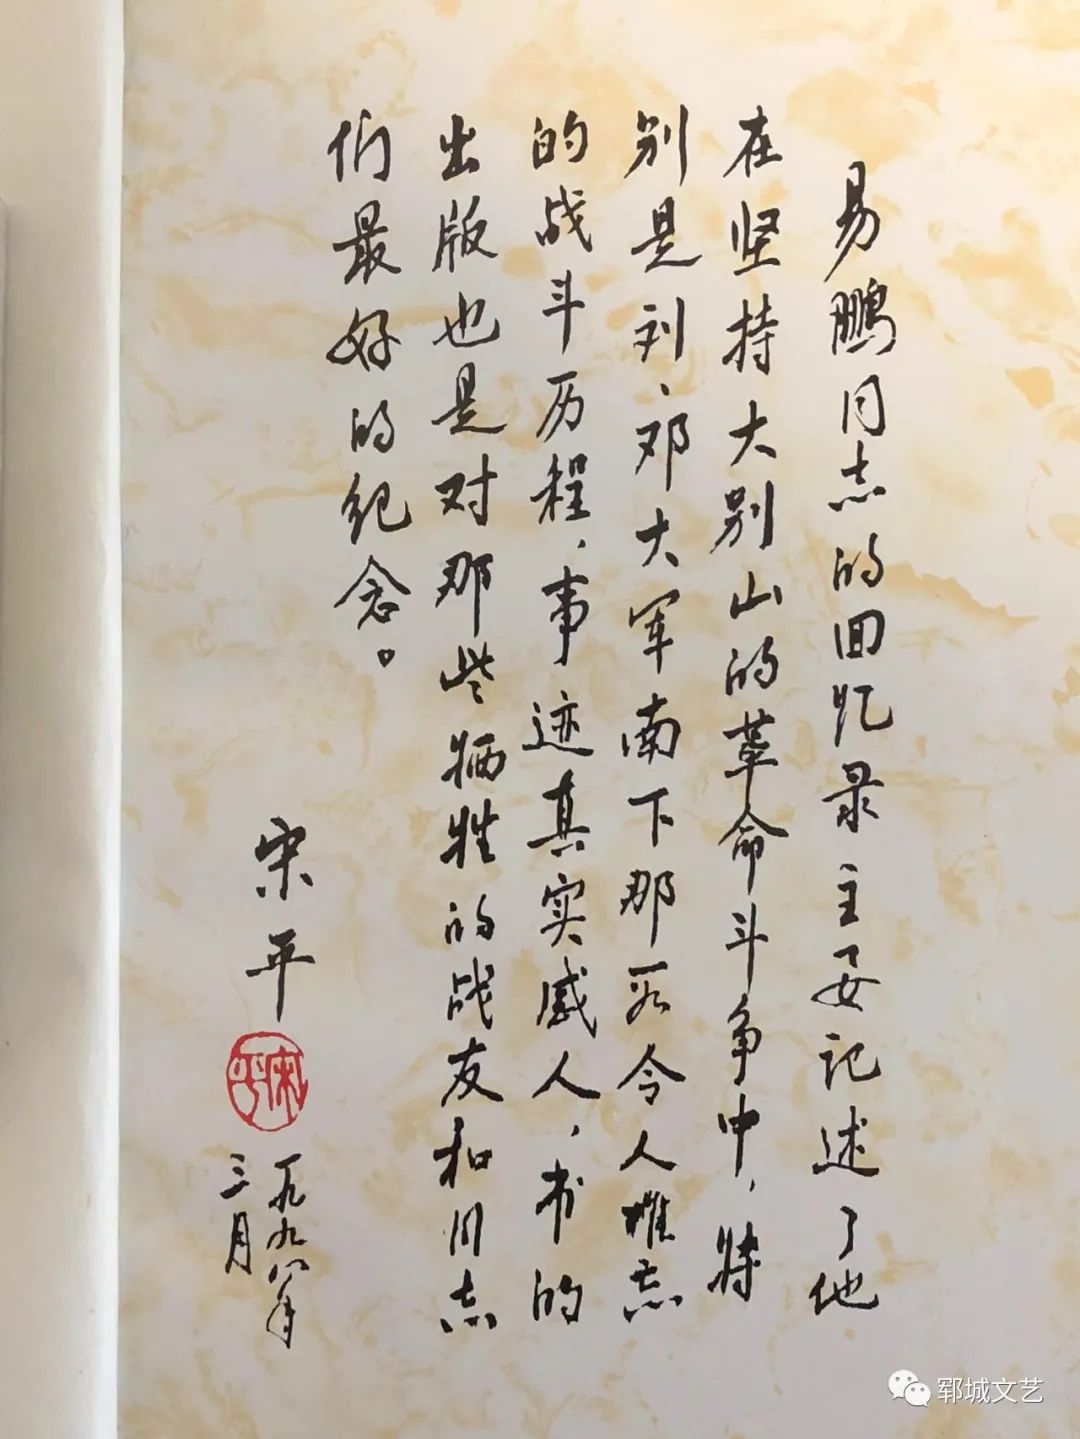 易鹏同志的回忆录主要记述了他
在坚持大别山的革命斗争中，特
别是刘、邓大军南下那段令人难忘
的战斗历程，事迹真实感人，书的
出版也是对那些牺牲的战友和同志
们最好的纪念。
宋平
宋平
一九九八年
三月
郓城文艺